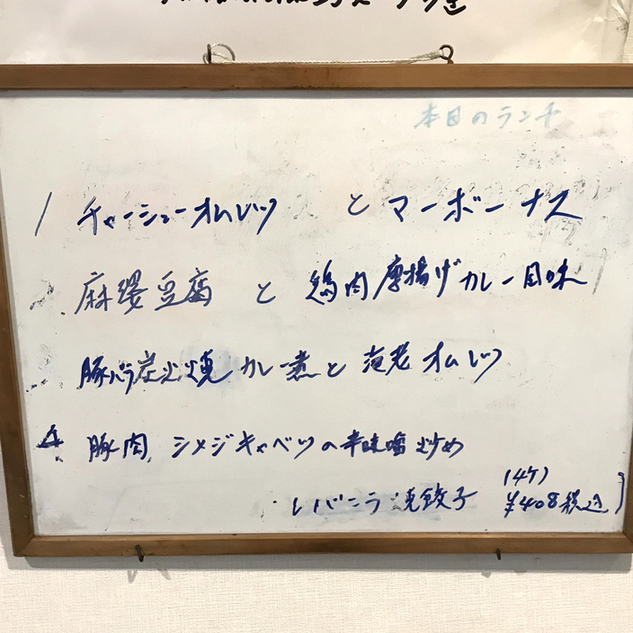 本日のランチ
1 チャーシューオムレツ とマーボーナス
麻婆豆腐 と 鶏肉唐揚げカレー風味
豚バラ炭火焼カレー煮と海老オムレツ
4. 豚肉,シメジキャベツの辛味噌炒め
レバニラ 焼餃子
(4ケ)
¥408税込)